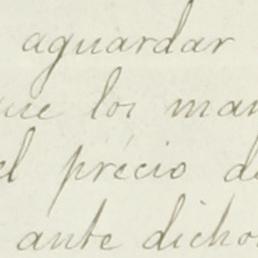 aguardar
ue los man
el précio de
ante dichos